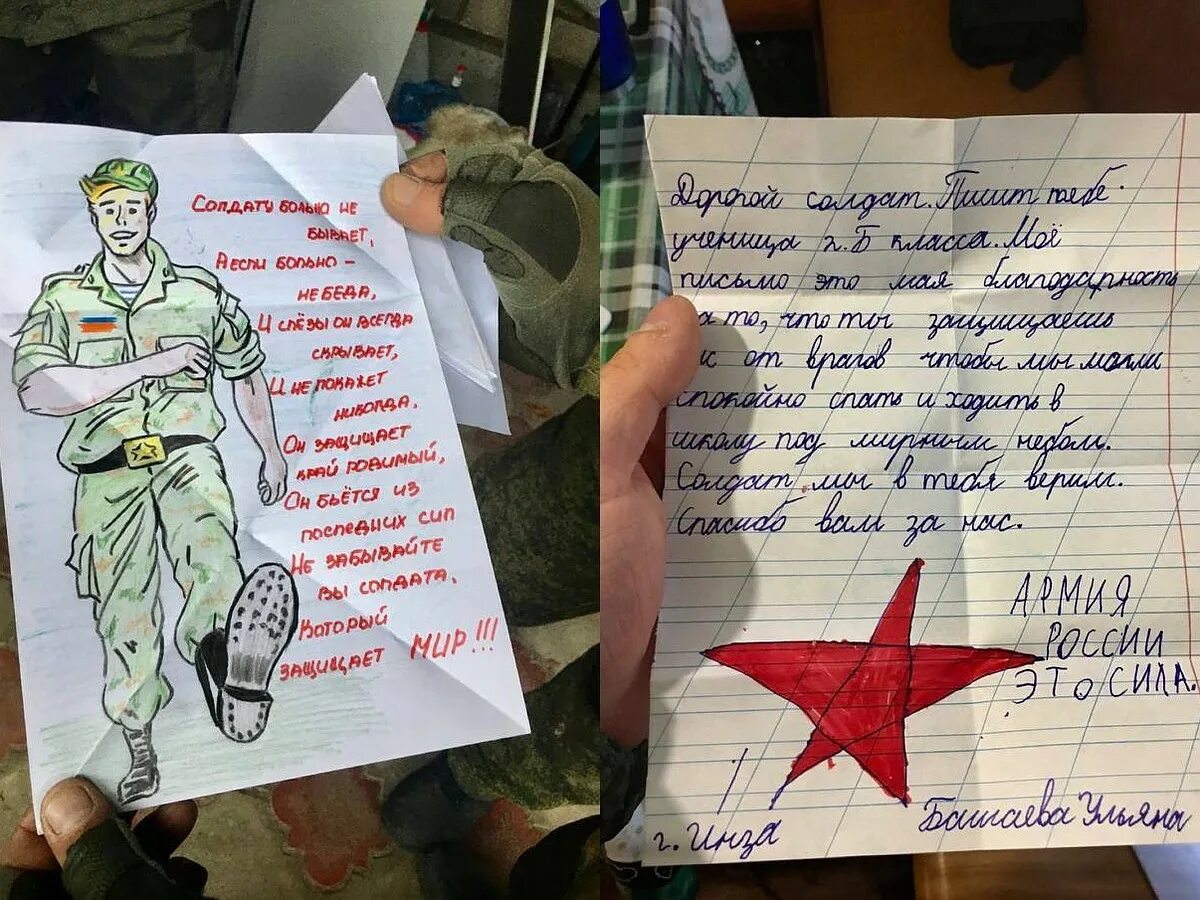 Солдату больно не
бывает,
А если больно –
не беда,
И слёзы он всегда
скрывает,
И не покажет
никогда.
Он защищает
край родимый,
Он бьётся из
последних сил
Не забывайте
вы солдата,
Который
защищает МИР!!!
Дорогой солдат. Пишит тебе
ученица 2. Б класса. Моё
письмо это мая благодарность
за то, что ты защищаешь
от врагов чтобы мы могли
спокойно спать и ходить в
школу под мирным небом.
Солдат мы в тебя верим.
Спасибо вам за нас.
АРМИЯ
РОССИИ
ЭТО СИЛА.
Башаева Ульяна
г. Инза